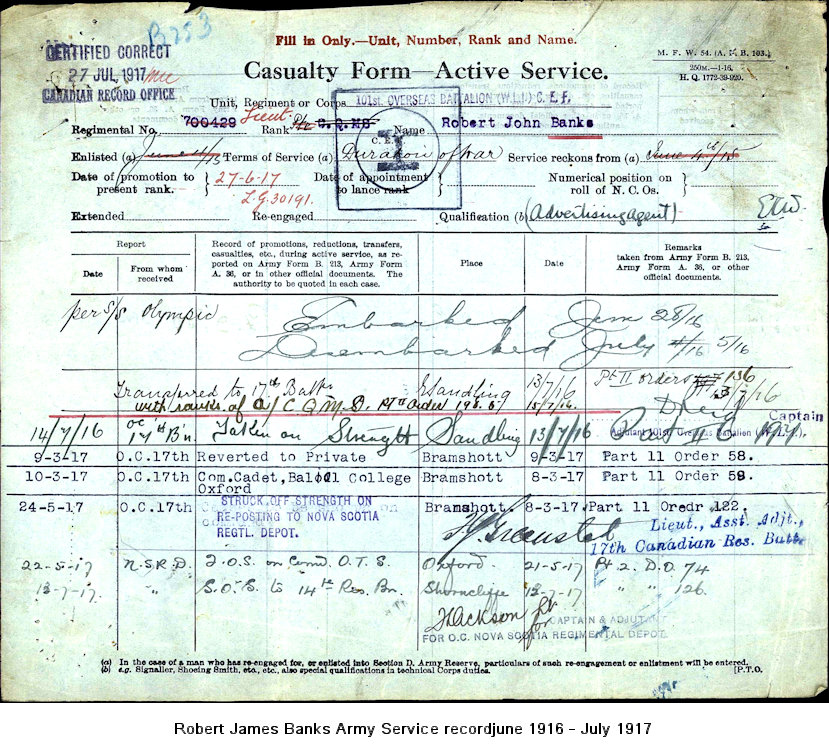 B253
Fill in Only.—Unit, Number, Rank and Name.
CERTIFIED CORRECT
27 JUL 1917
CANADIAN RECORD OFFICE
M. F. W. 54. (A. F. B. 103.)
250M.—1-16.
H. Q. 1772-39-920.
Casualty Form—Active Service.
Unit, Regiment or Corps 101st. OVERSEAS BATTALION (W.L.I.) C.E.F.
Regimental No. 700429 Lieut Rank C.Q.MS Name Robert John Banks
C. E.
Enlisted (a) Terms of Service (a) Duration of war Service reckons from (a) June 4th/15
Date of promotion to present rank. } 27-6-17 Date of appointment to lance rank } Numerical position on roll of N. C. Os. }
L.G. 30191.
Extended Re-engaged Qualification (b) (Advertising agent)
Report
Date
From whom received
Record of promotions, reductions, transfers, casualties, etc., during active service, as reported on Army Form B. 213, Army Form A. 36, or in other official documents. The authority to be quoted in each case.
Place
Date
Remarks taken from Army Form B. 213, Army Form A. 36, or other official documents.
per S/S Olympic Embarked June 28/16
Disembarked July 5/16
Transferred to 17th Battn Sandling 13/7/16 Pt II orders 136
with rank of A/C.Q.M.S. Pt II order 198.5 13/7/16
Captain
Adjutant 101st Overseas Battalion (W.L.I.)
14/7/16 OC 17th Bn. Taken on Strenght Sandling 13/7/16 Part
9-3-17 O.C.17th Reverted to Private Bramshott 9-3-17 Part 11 Order 58.
10-3-17 O.C.17th Com.Cadet, Baliol College Oxford Bramshott 8-3-17 Part 11 Order 59.
24-5-17 O.C.17th STRUCK OFF STRENGTH ON Bramshott. 8-3-17. Part 11 Oredr 122.
RE-POSTING TO NOVA SCOTIA
REGTL. DEPOT.
Lieut., Asst. Adjt.,
17th Canadian Res. Battn.
22-5-17 N.S.R.D. T.O.S. on Comd. O.T.S. Oxford 21-5-17 Pt 2. D.O. 74
13-7-17. " S.O.S. to 14th Res. Bn. Shorncliffe 12-7-17 " " 126.
CAPTAIN & ADJUTANT
for
FOR O.C. NOVA SCOTIA REGIMENTAL DEPOT.
(a) In the case of a man who has re-engaged for, or enlisted into Section D. Army Reserve, particulars of such re-engagement or enlistment will be entered.
(b) e.g. Signaller, Shoeing Smith, etc., etc., also special qualifications in technical Corps duties. [P.T.O.
Robert James Banks Army Service recordjune 1916 - July 1917